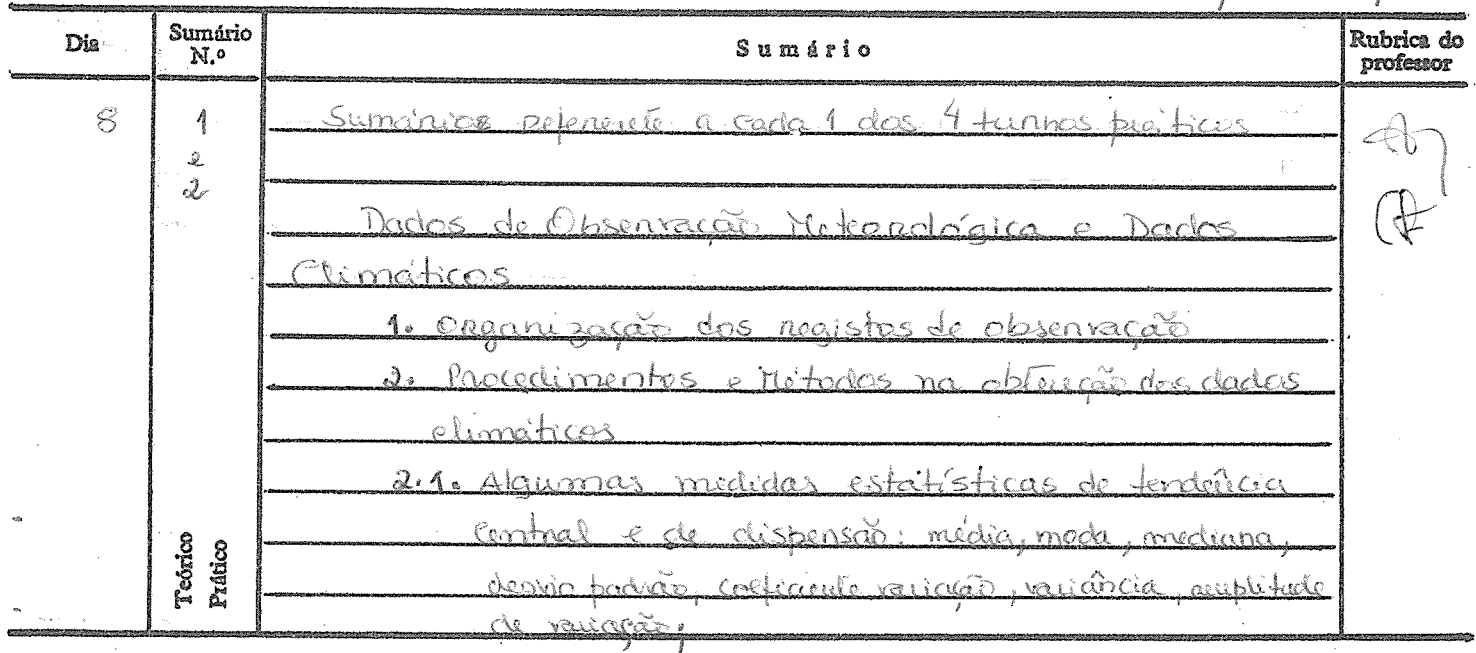 Dia Sumário N.º Sumário Rubrica do professor
8 1 e 2 Sumários referente a cada 1 dos 4 turnos práticos
Dados de Observação Meteorológica e Dados
Climáticos
1. Organização dos registos de observação
2. Procedimentos e Métodos na obtenção dos dados
climáticos
2.1. Algumas medidas estatísticas de tendência
central e de dispersão: média, moda, mediana,
desvio padrão, coeficiente variação, variância, amplitude
de variação;
Teórico
Prático